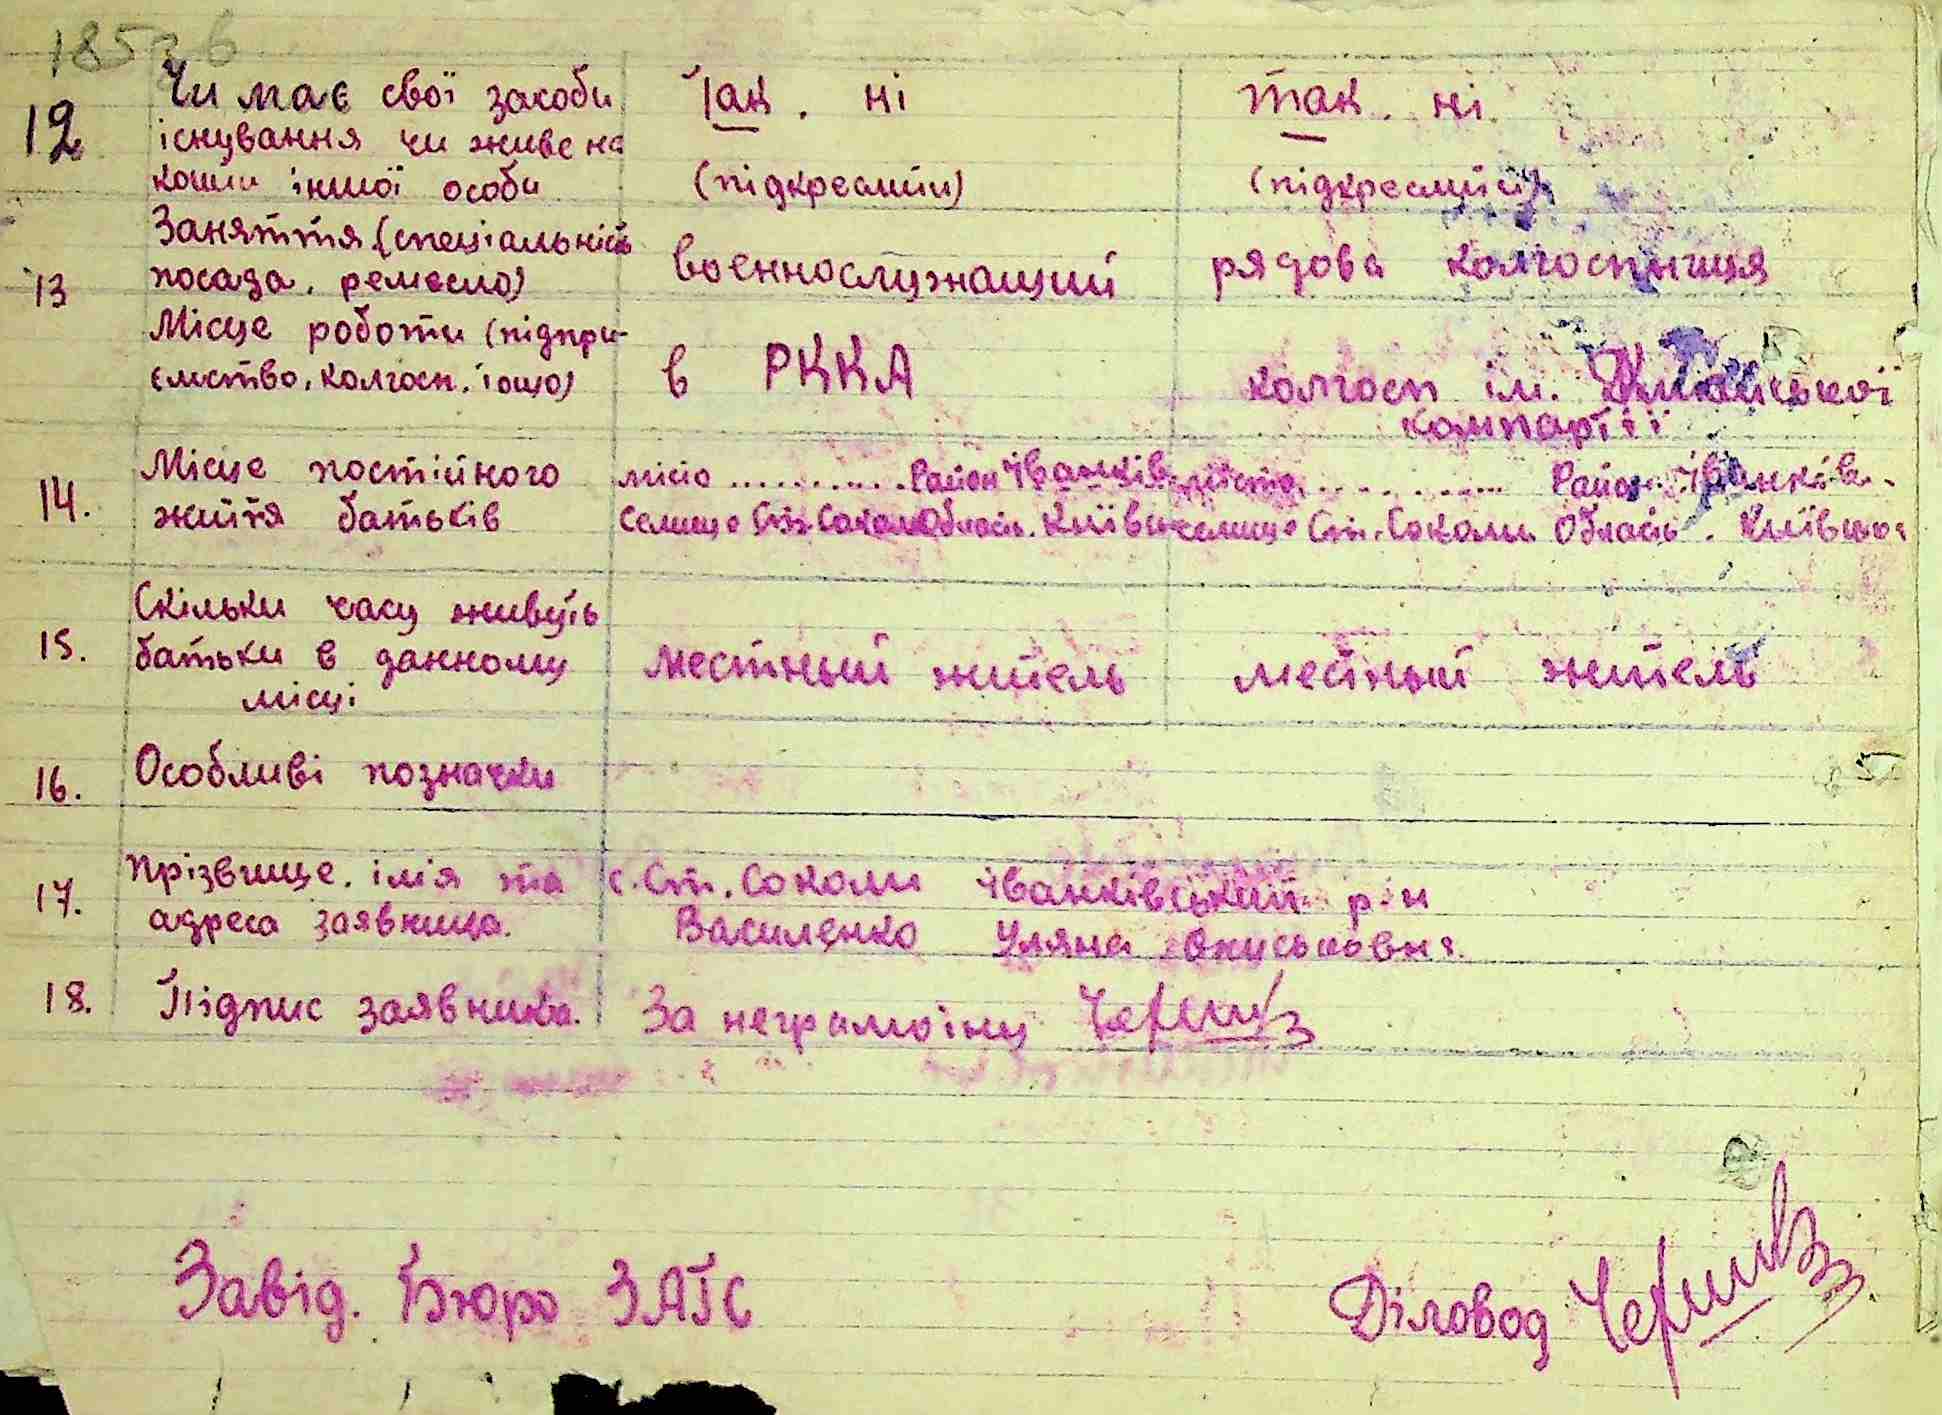 185
12 Чи має свої засоби Так. ні так. ні
існування чи живе на
кошти іншої особи (підкреслити) (підкреслити)
13 Заняття (спеціальність военнослужащий рядова колгоспниця
посада, ремесло)
Місце роботи (підпри-
ємство, колгосп, тощо) в РККА колгосп ім.
компартії
14. Місце постійного місто ........... Район Іванків. місто ........... Район Іванків.
життя батьків селище Ст. Соколи Область. Київськ селище Ст. Соколи Область. Київськ
15. Скільки часу живуть
батьки в данному местный житель местный житель
місці
16. Особливі позначки
17. Прізвище, імія та с. Ст. Соколи Іванківський р-н
адреса заявника. Василенко Уляна
18. Підпис заявника. За неграмотну
Завід. Бюро ЗАГС Діловод